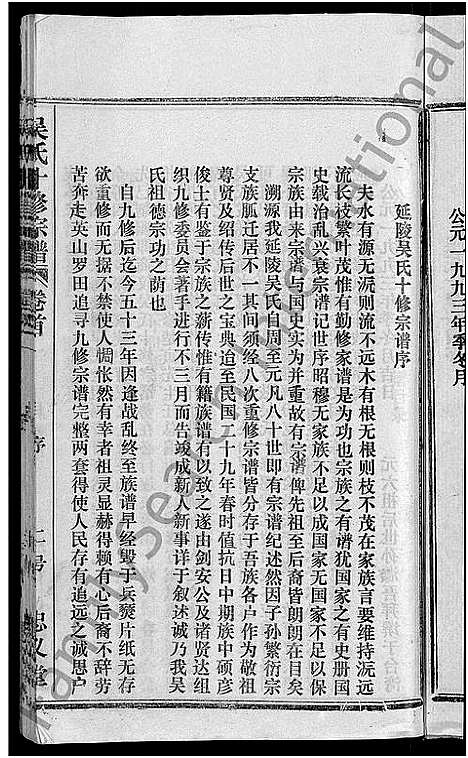 公元一九九三年季冬月
延陵吴氏十修宗谱序
夫水有源无沅则流不远木有根无根则枝不茂在家族言要维持沅远
流长枝繁叶茂惟有勤修家谱是为功也宗族之有谱犹国家之有史册国
史载治乱兴衰宗谱记世序昭穆无家族不足以成国家无国家不足以保
宗族由来宗谱与国史实为并重故有宗谱俾先祖至后裔皆朗朗在目矣
溯源我延陵吴氏自周至元凡八十世即有宗谱纪述然因子孙繁衍宗
支族胍迁居不一其间须经八次重修宗谱皆分存于吾族各户作为敬祖
尊贤及绍传后世之宝典迨至民国二十九年春时值抗日中期族中硕彦
俊士有鉴于宗族之薪传惟有籍族谱有以致之遂由剑安公及诸贤达组
织九修委员会著手进行不三月而告竣成新人新事详于叙述诚乃我吴
氏祖德宗功之荫也
自九修后迄今五十三年因逢战乱终至族谱早经毁于兵燹片纸无存
欲重修而无据不禁使人惆怅然有幸者祖灵显赫得赖有心后裔不辞劳
苦奔走英山罗田追寻九修宗谱完整两套得使人民存有追远之诚思户
吴氏十修宗谱 卷首 序 二号 忠义堂
FamilySearch International